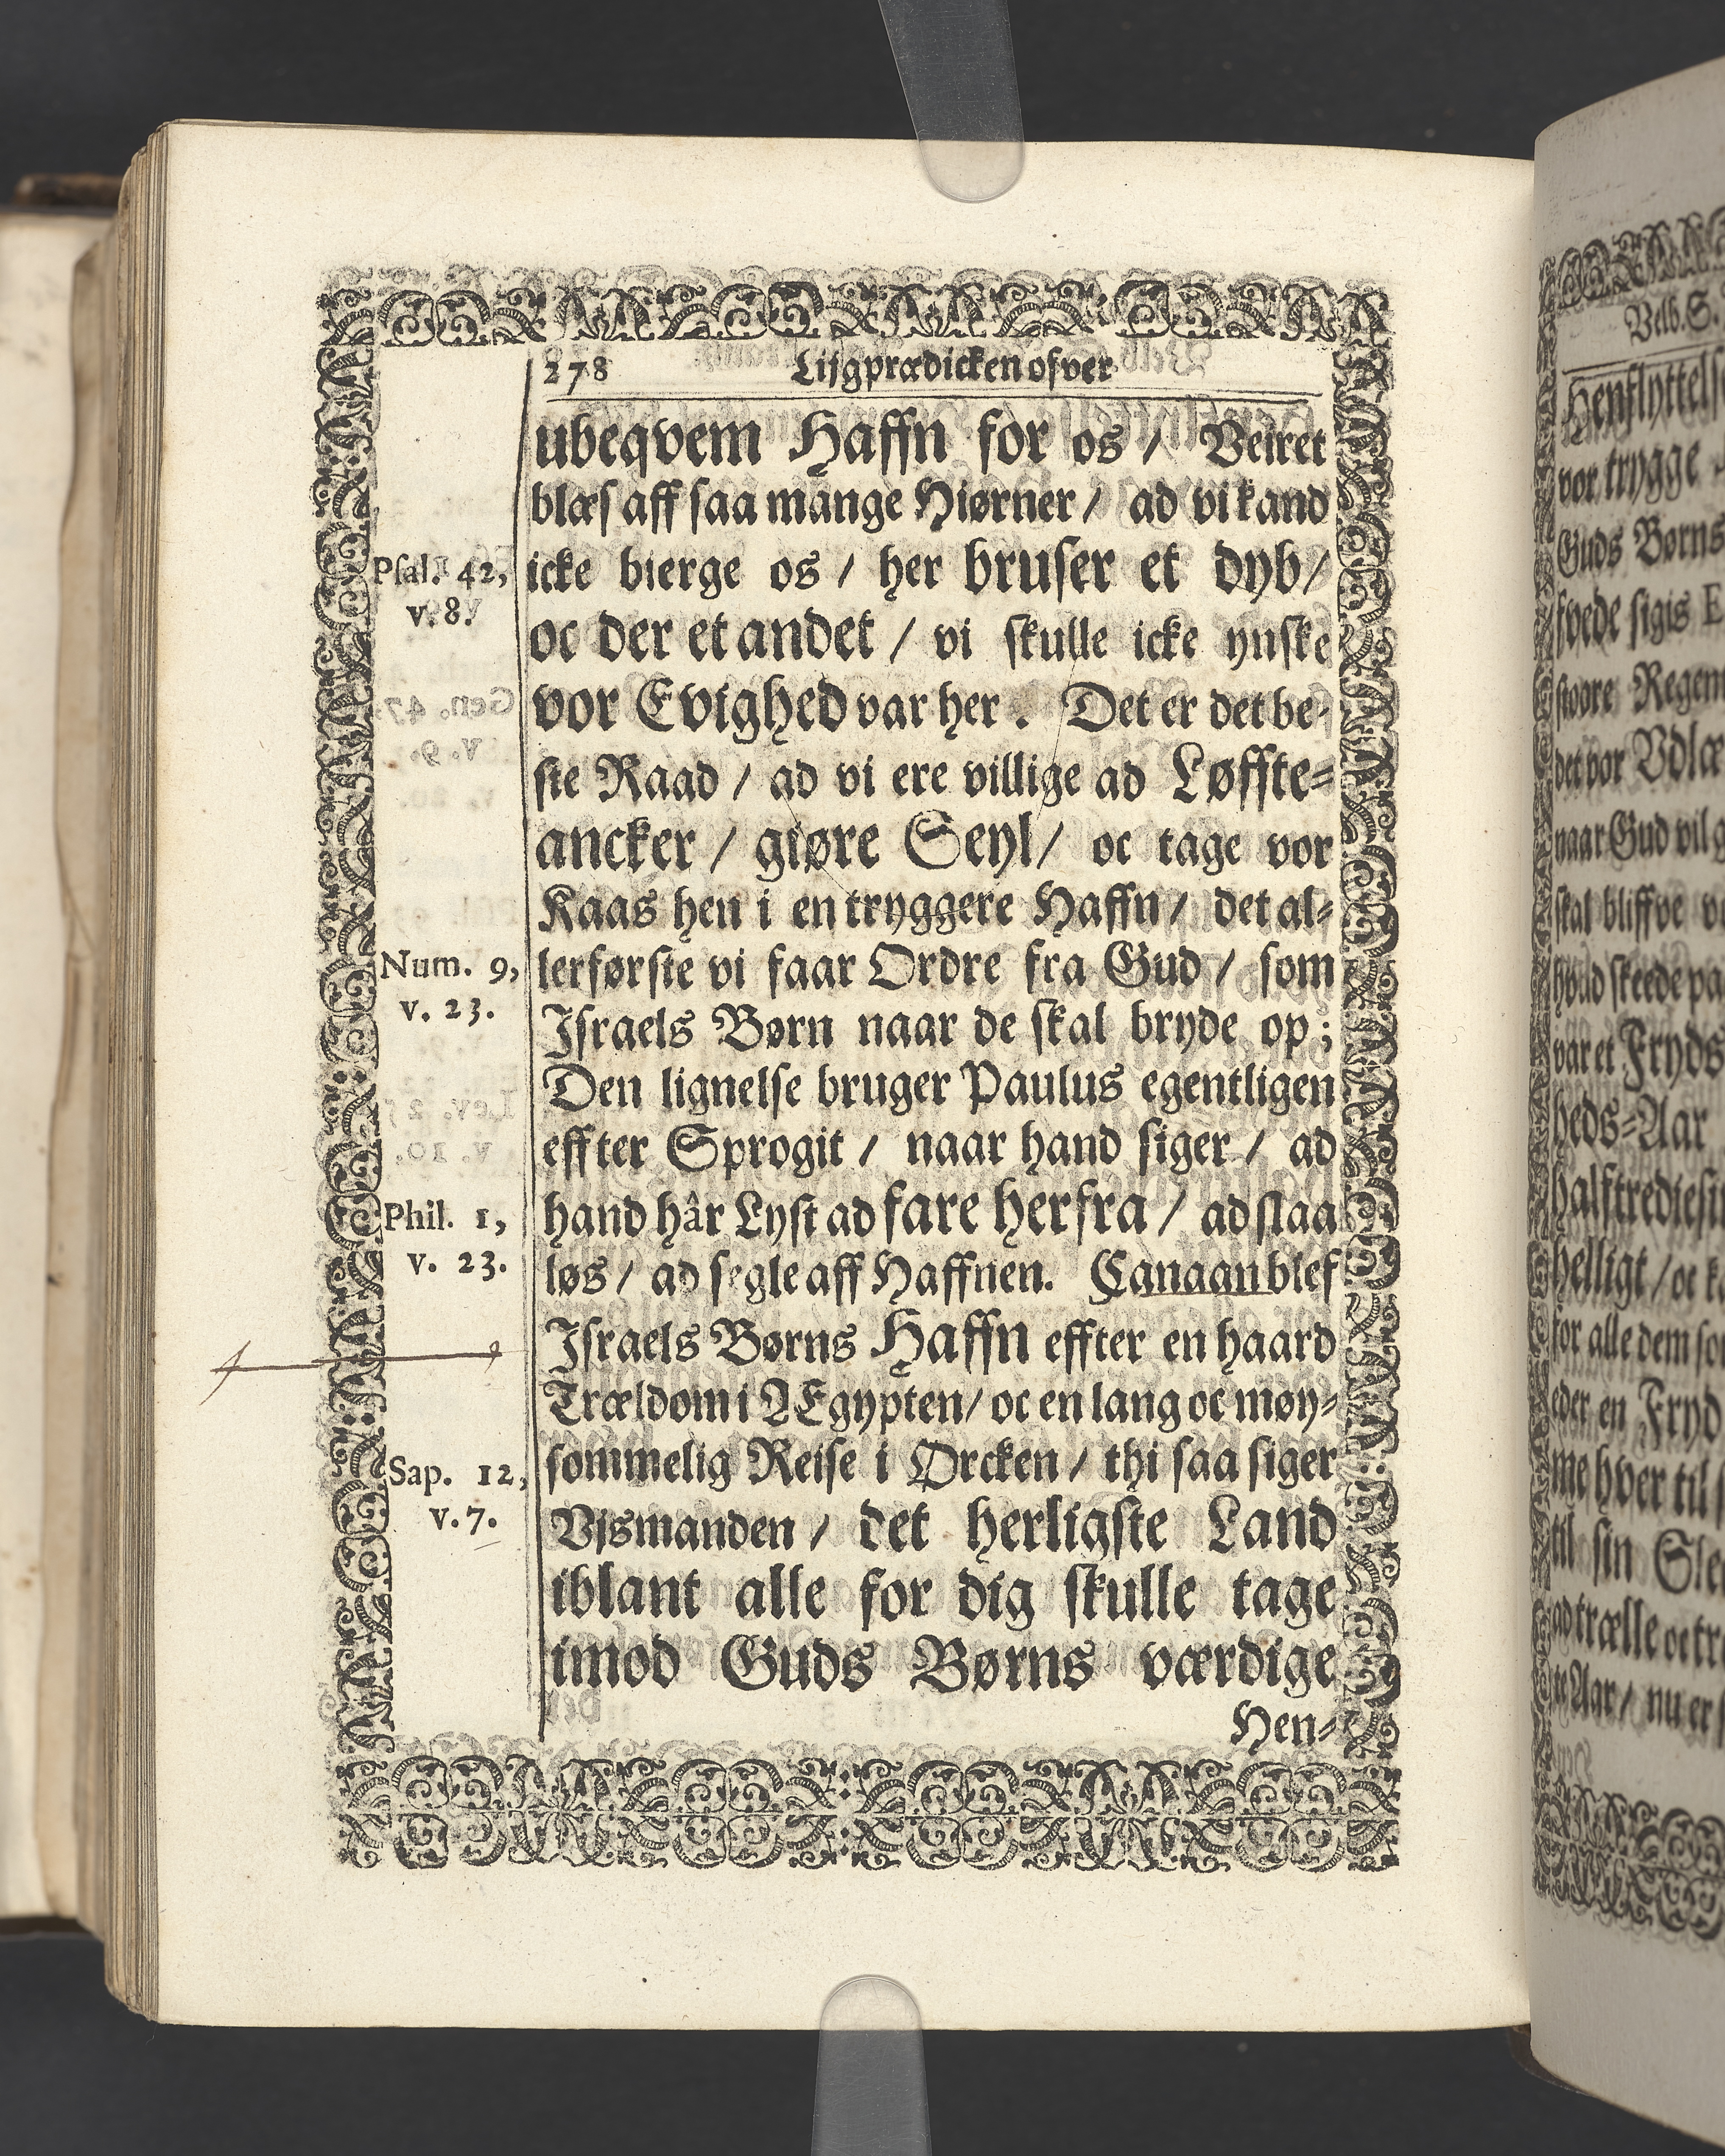 278 Lijgprædicken ofver
ubeqvem Haffn for os / Veiret
blæs aff saa mange Hiørner / ad vi kand
icke bierge os / her bruser et dyb /
Psal. 42,
v. 8.
oc der et andet / vi skulle icke ynske
vor Evighed var her. Det er det be-
ste Raad / ad vi ere villige ad Løffte-
ancker / giøre Seyl / oc tage vor
Kaas hen i en tryggere Haffn / det al-
lerførste vi faar Ordre fra Gud / som
Num. 9,
v. 23.
Israels Børn naar de skal bryde op;
Den lignelse bruger Paulus egentligen
effter Sprogit / naar hand siger / ad
hand hâr Lyst ad fare herfra / ad slaa
Phil. 1,
v. 23.
løs / ad segle aff Haffnen. Canaan blef
Israels Børns Haffn effter en haard
Trældom i ÆEgypten / oc en lang oc møy-
sommelig Reise i Ørcken / thi saa siger
Sap. 12,
v. 7.
Vjsmanden / det herligste Land
iblant alle for dig skulle tage
imod Guds Børns værdige
Hen-
Velb. S.
vor trygge
Guds Børns
det vor Udlæ
naar Gud vil
skal bliffve
var et Fryds
heds-Aar
helligt / oc
for alle dem
eder en Fryd
me hver til
til sin
te Aar / nu er